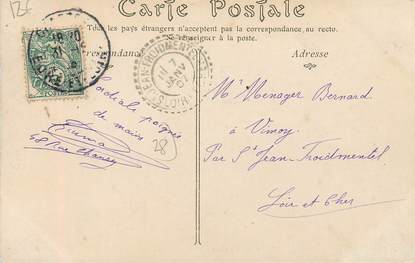 12€
Carte Postale
Tous les pays étrangers n'acceptent pas la correspondance au recto.
se renseigner à la poste.
Correspondance
Adresse
7
JANV
07
Cordiale poignée
de mains
28
Mr Menager Bernard
à Vimoy
Par St Jean Froidmentel
Loir et Cher